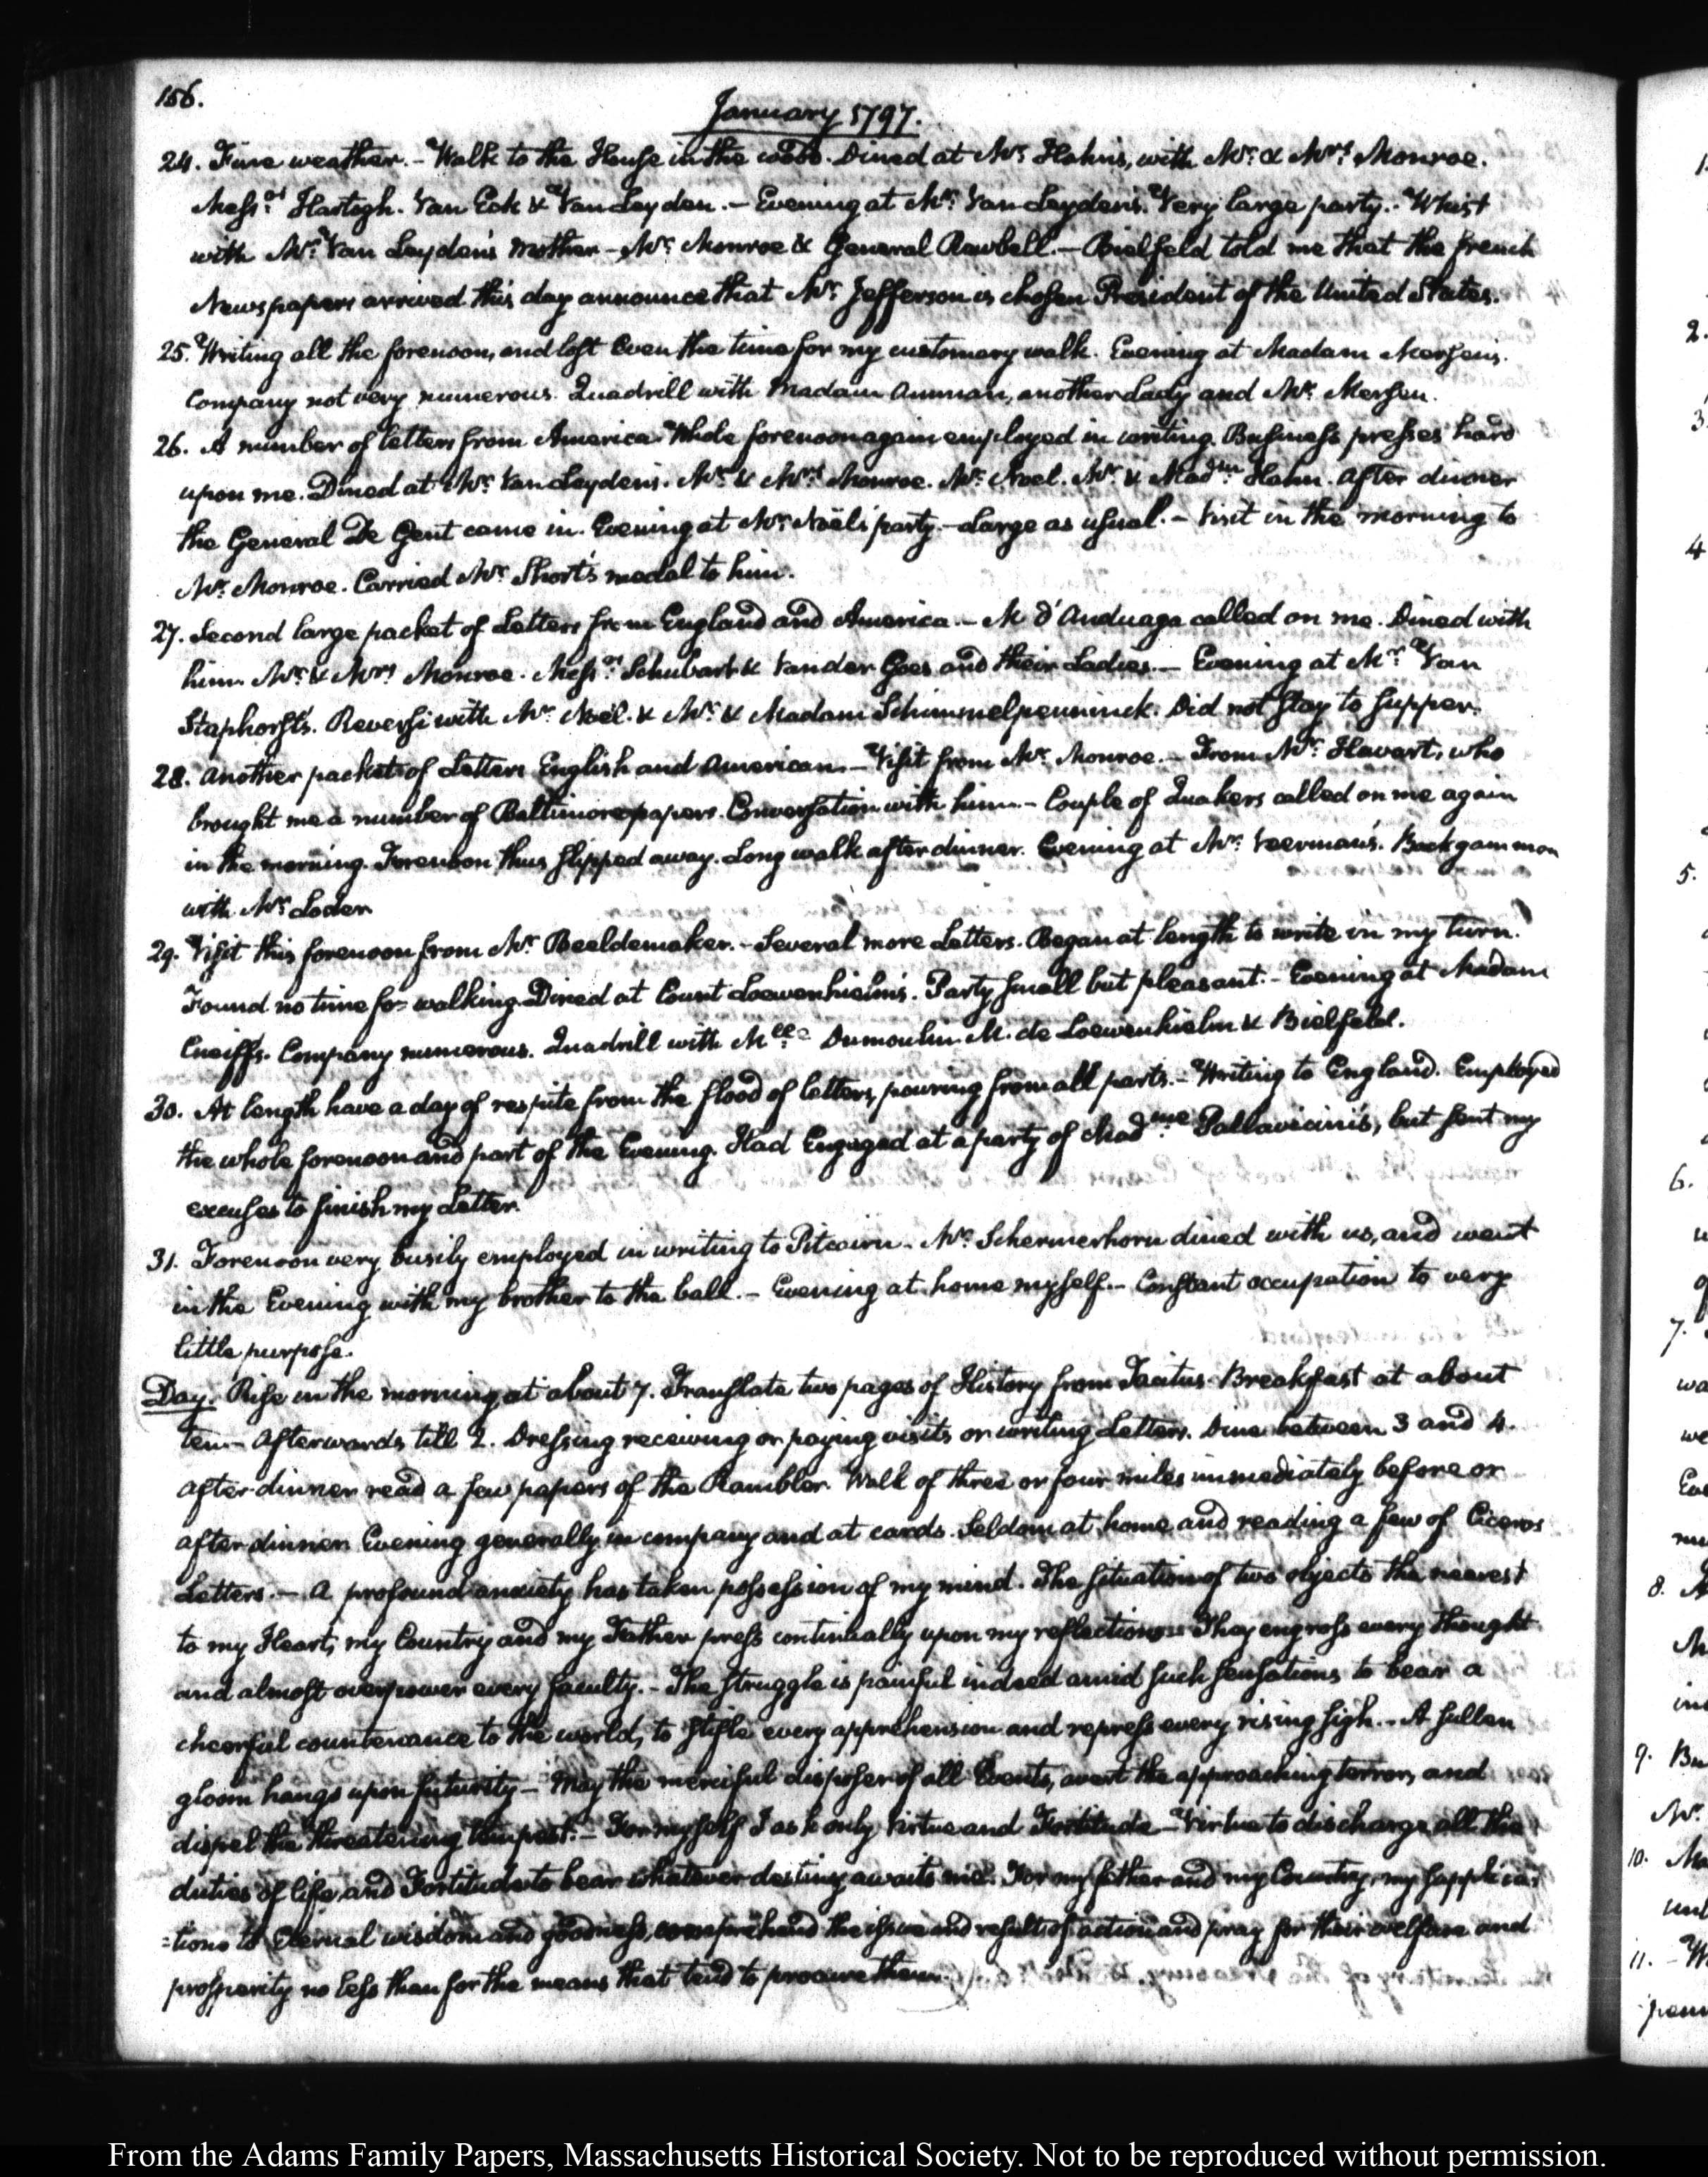 156.
January 1797.
24. Fine weather. - Walk to the House in the wood. Dined at Mr. Hahn's, with Mr. & Mrs. Monroe.
Messrs. Hartogh. Van Eck & Van Leyden. - Evening at Mr. Van Leyden's. Very large party. - Whist
with Mr. Van Leyden's Mother - Mr. Monroe & General Rewbell. - Bielfeld told me that the french
Newspapers arrived this day announce that Mr. Jefferson is chosen President of the United States.
25. Writing all the forenoon, and lost even the time for my customary walk. Evening at Madam Mersen's.
Company not very numerous. Quadrill with Madam Amman, another Lady and Mr. Mersen.
26. A number of letters from America. Whole forenoon again employed in writing. Business presses hard
upon me. Dined at Mr. Van Leyden's. Mr. & Mrs. Monroe. Mr. Noel. Mr. & Madm. Hahn. After dinner
the General De Gent came in. Evening at Mr. Noël's party. - Large as usual. - Visit in the morning to
Mr. Monroe. Carried Mr. Short's medal to him.
27. Second large packet of Letters from England and America. - M d'Anduaga called on me. Dined with
him. Mr. & Mrs. Monroe. Messrs. Schubart & Vander Goes and their Ladies. - Evening at Mr. Van
Staphorst's. Reversi with Mr. Noël. & Mr. & Madam Schimmelpenninck. Did not stay to supper.
28. Another packet of Letters English and American. - Visit from Mr. Monroe. - From Mr. Havart, who
brought me a number of Baltimore papers. Conversation with him. - Couple of Quakers called on me again
in the morning. Forenoon thus slipped away. Long walk after dinner. Evening at Mr. Veerman's. Backgammon
with Mr. Loder
29. Visit this forenoon from Mr. Beeldemaker. - Several more Letters. Began at length to write in my turn.
Found no time for walking. Dined at Count Loewenhielm's. Party small but pleasant. - Evening at Madam
Cneiffs. Company numerous. Quadrill with Mlle. Dumoulin M. de Loewenhielm & Bielfeld.
30. At length have a day of respite from the flood of letters, pouring from all parts. - Writing to England. Employed
the whole forenoon and part of the Evening. Had Engaged at a party of Madme. Pallavicini's, but sent my
excuses to finish my Letter.
31. Forenoon very busily employed in writing to Pitcairn. Mr. Schermerhorn dined with us, and went
in the Evening with my brother to the ball. - Evening at home myself. - Constant occupation to very
little purpose.
Day. Rise in the morning at about 7. Translate two pages of History from Tacitus. Breakfast at about
ten - Afterwards till 2. Dressing receiving or paying visits or writing Letters. Dine between 3 and 4.
After dinner read a few papers of the Rambler. Walk of three or four miles immediately before or
after dinner. Evening generally in company and at cards. Seldom at home and reading a few of Cicero's
Letters. - A profound anxiety has taken possession of my mind. The situation of two objects the nearest
to my Heart, my Country and my Father press continually upon my reflections. They engross every thought
and almost overpower every faculty. - The struggle is painful indeed amid such sensations to bear a
cheerful countenance to the world, to stifle every apprehension and repress every rising sigh. - A sullen
gloom hangs upon futurity - May the merciful disposer of all Events, avert the approaching terror, and
dispel the threatening tempest. - For myself I ask only Virtue and Fortitude - Virtue to discharge all the
duties of life, and Fortitude to bear whatever destiny awaits me. For my father and my Country, my supplica=
=tions to Eternal wisdom and goodness, comprehend the issue and result of action and pray for their welfare and
prosperity no less than for the means that tend to procure them.
From the Adams Family Papers, Massachusetts Historical Society. Not to be reproduced without permission.